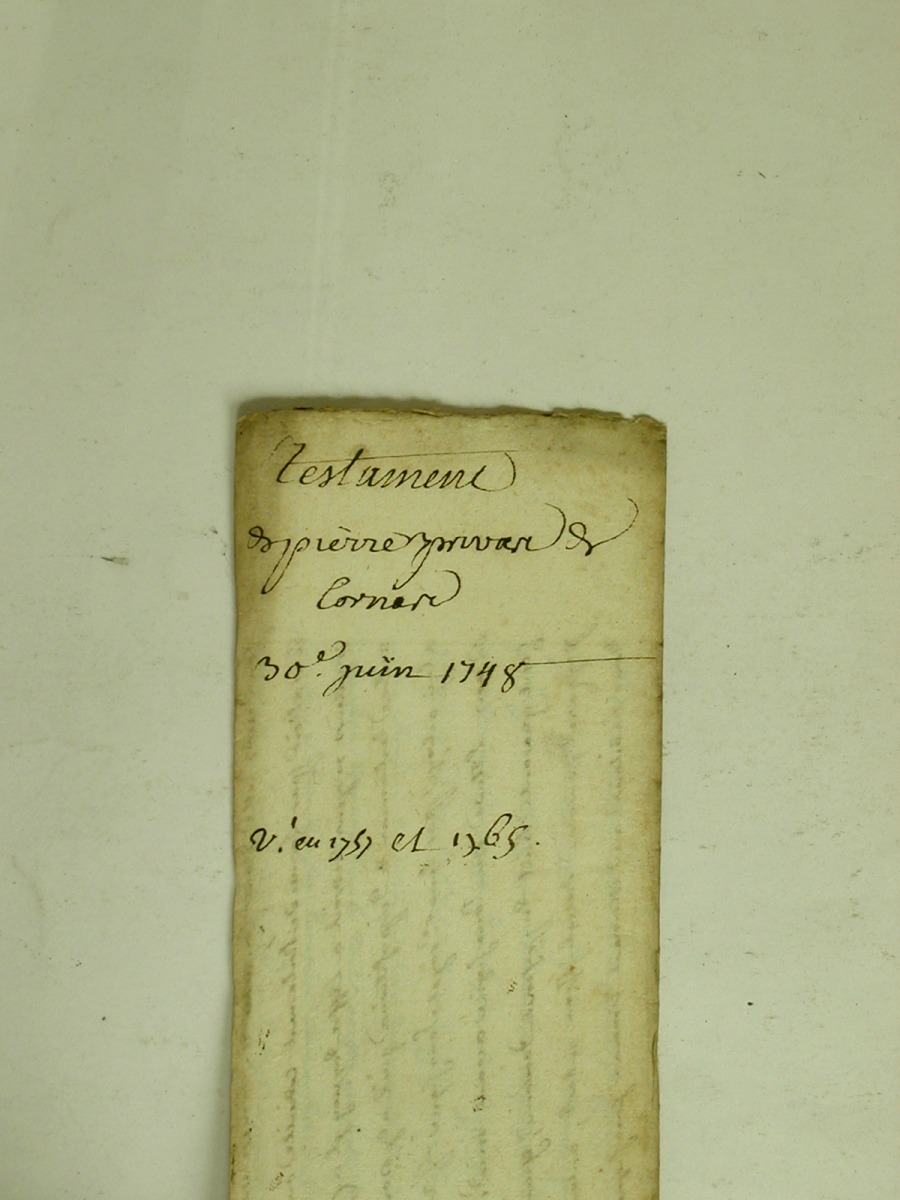 Testament
de pièrre privat de
Cornas
30e. juin 1748
V. en 1757 et 1765.